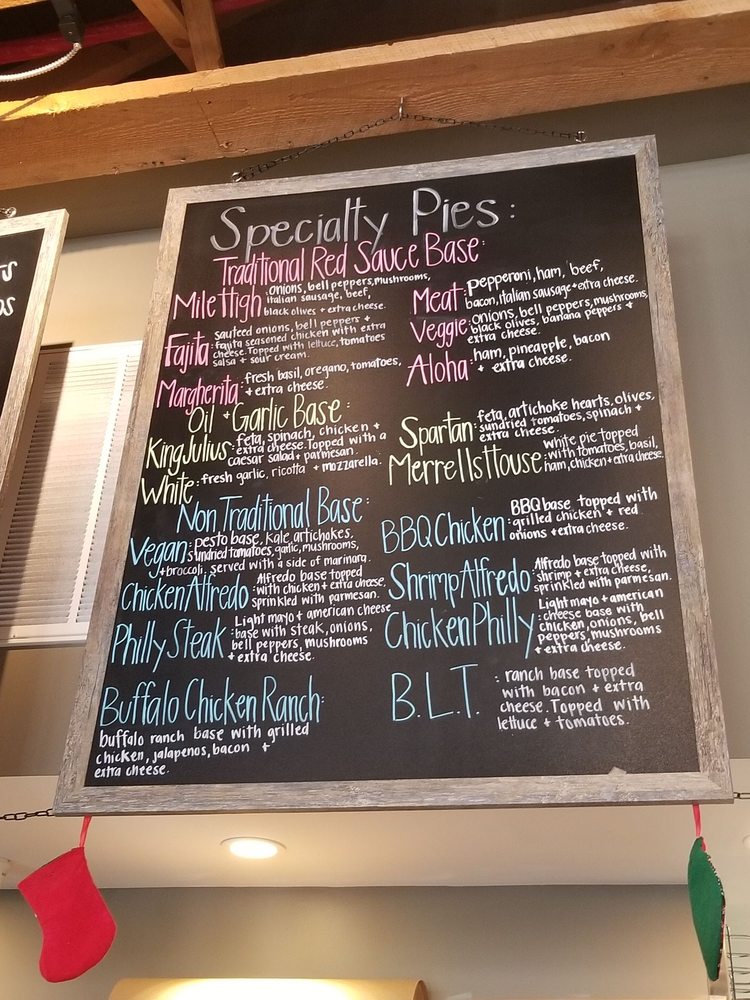 TS
OS
Specialty Pies:
Traditional Red Sauce Base:
Mile High: onions, bell peppers, mushrooms,
italian sausage, beef,
black olives + extra cheese.
Meat: Pepperoni, ham, beef,
bacon, italian sausage + extra cheese.
Fajita: sauteed onions, bell peppers +
fajita seasoned chicken with extra
cheese. Topped with lettuce, tomatoes
salsa + sour cream.
Veggie: onions, bell peppers, mushrooms,
black olives, banana peppers +
extra cheese.
Margherita: fresh basil, oregano, tomatoes,
+ extra cheese.
Aloha: ham, pineapple, bacon
+ extra cheese.
Oil + Garlic Base:
King Julius: feta, spinach, chicken +
extra cheese. Topped with a
caesar salad + parmesan.
Spartan: feta, artichoke hearts, olives,
sundried tomatoes, spinach +
extra cheese.
White: fresh garlic, ricotta + mozzarella.
Merrells House: white pie topped
with tomatoes, basil,
ham, chicken + extra cheese.
Non Traditional Base:
Vegan: pesto base, kale, artichokes,
sundried tomatoes, garlic, mushrooms,
+ broccoli. served with a side of marinara.
BBQ Chicken: BBQ base topped with
grilled chicken + red
onions + extra cheese.
Chicken Alfredo: Alfredo base topped
with chicken + extra cheese,
sprinkled with parmesan.
Shrimp Alfredo: Alfredo base topped with
shrimp + extra cheese,
sprinkled with parmesan.
Philly Steak: Light mayo + american cheese
base with steak, onions,
bell peppers, mushrooms
+ extra cheese.
Chicken Philly: Light mayo + american
cheese base with
chicken, onions, bell
peppers, mushrooms
+ extra cheese.
Buffalo Chicken Ranch:
buffalo ranch base with grilled
chicken, jalapenos, bacon +
extra cheese.
B.L.T. : ranch base topped
with bacon + extra
cheese. Topped with
lettuce + tomatoes.